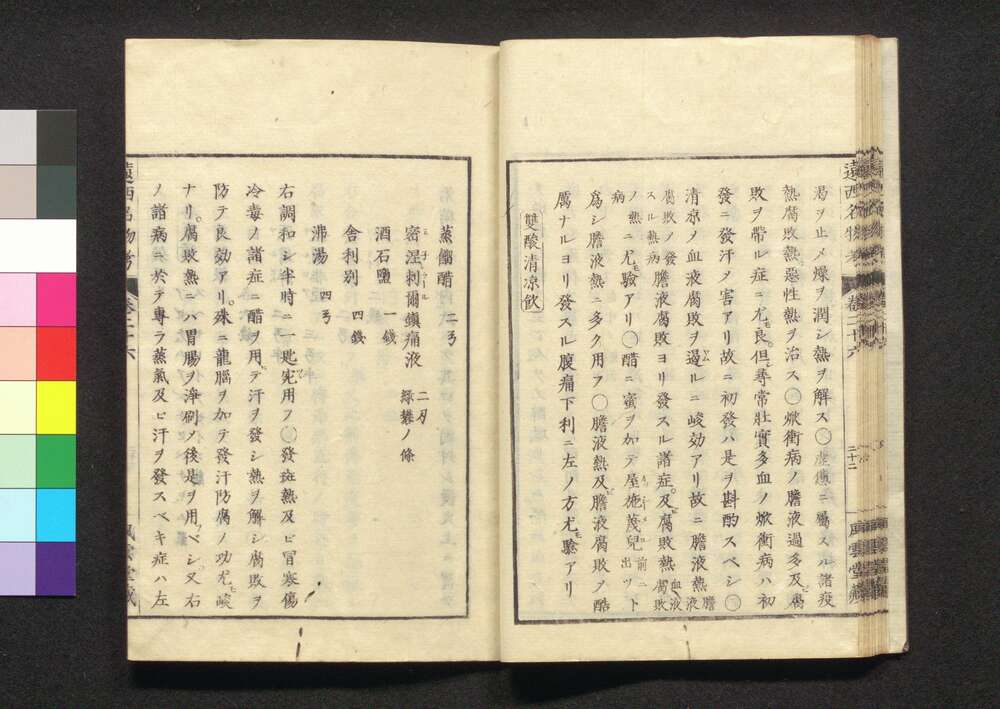 遠西名物考 卷二十六 三十二 風雲堂藏
渴ヲ止メ燥ヲ潤シ熱ヲ解ス○虚憊ニ屬スル諸疫
熱腐敗熱惡性熱ヲ治ス○焮衝病ノ膽液過多及ビ腐
敗ヲ帶ル症ニ尤モ良但シ尋常壯實多血ノ焮衝病ハ初
發ニ發汗ノ害アリ故ニ初發ハ是ヲ斟酌スベシ○
清涼ノ血液腐敗ヲ遏ルニ峻効アリ故ニ膽液熱膽液
腐敗ノ發スル熱病膽液腐敗ヨリ發スル諸症及ビ腐敗熱血液腐敗
ノ熱病ニ尤モ驗アリ○醋ニ蜜ヲ加テ屋施蔑兒前ニ出ヅト
爲シ膽液熱ニ多ク用フ○膽液熱及ビ膽液腐敗ヲ酷
厲ナルヨリ發スル腹痛下利ニ左ノ方尤モ驗アリ
雙酸清涼飮
蒸餾醋 二弓
密涅刺爾鎭痛液 二刃 綠礬ノ條
酒石鹽 一錢
舎利別 四錢
沸湯 四弓
右調和シ半時ニ一匙宛用フ○發斑熱及ビ冒寒傷
冷毒ノ諸症ニ醋ヲ用テ汗ヲ發シ熱ヲ解シ腐敗ヲ
防テ良効アリ。殊ニ龍腦ヲ加テ發汗防腐ノ功尤モ峻
ナリ。腐敗熱ニハ胃腸ヲ淨刷ノ後是ヲ用フベシ。又右
ノ諸病ニ於テ專ラ蒸氣及ビ汗ヲ發スベキ症ハ左
遠西名物考 卷二十六 風雲堂藏